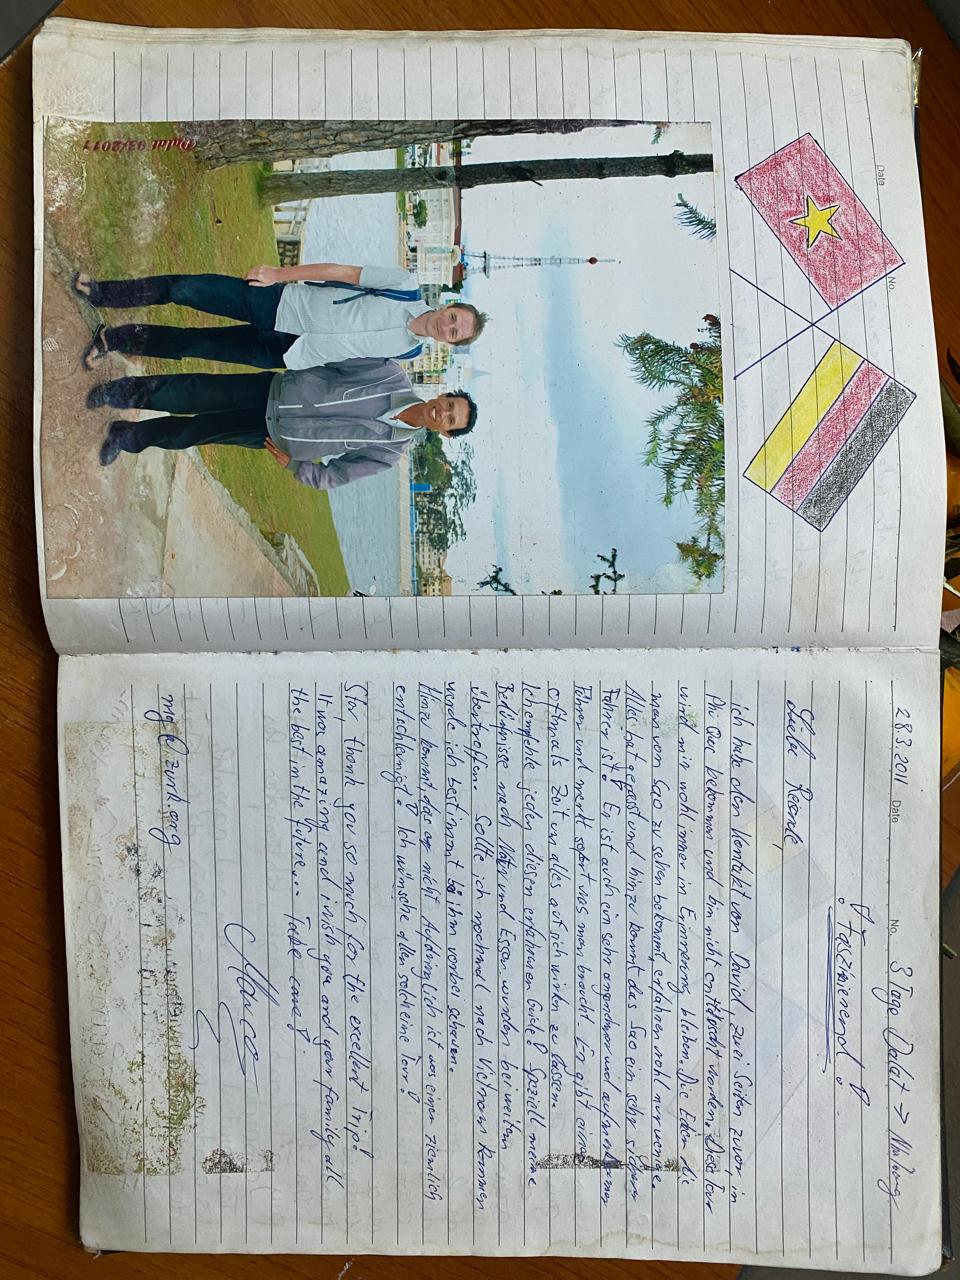 Date
No.
Dalat 03/2011
28.3.2011 Date No. 3 Tage Dalat →
! Faszinierend !
Liebe Reisende,
ich habe den Kontakt von David, zwei Seiten zuvor in
Phu Quoc bekommen und bin nicht enttäuscht worden. Diese Tour
wird mir wohl immer in Erinnerung bleiben. Die Ecken die
man von Sao zu sehen bekommt, erfahren wohl nur wenige.
Alles hat gepasst und hinzu kommt das Sao ein sehr
Fahrer ist! Er ist auch ein sehr angenehmer und aufmerksamer
Fahrer und merkt sofort was man braucht. Er gibt einem
oftmals Zeit um alles auf sich wirken zu lassen.
Ich empfehle jeden diesen erfahrenen Guide! Speziell meine
Bedürfnisse nach Natur und Essen wurden bei weitem
übertroffen. Sollte ich nochmal nach Vietnam kommen
werde ich bestimmt bei ihm vorbei schauen.
Hinzu kommt, das er nicht Aufdringlich ist was einen ziemlich
entschleunigt! Ich wünsche allen solch eine Tour!
thank you so much for the excellent Trip!
It was amazing and i wish you and your family all
the best in the future... Take care!
Marco
m@zunk.org